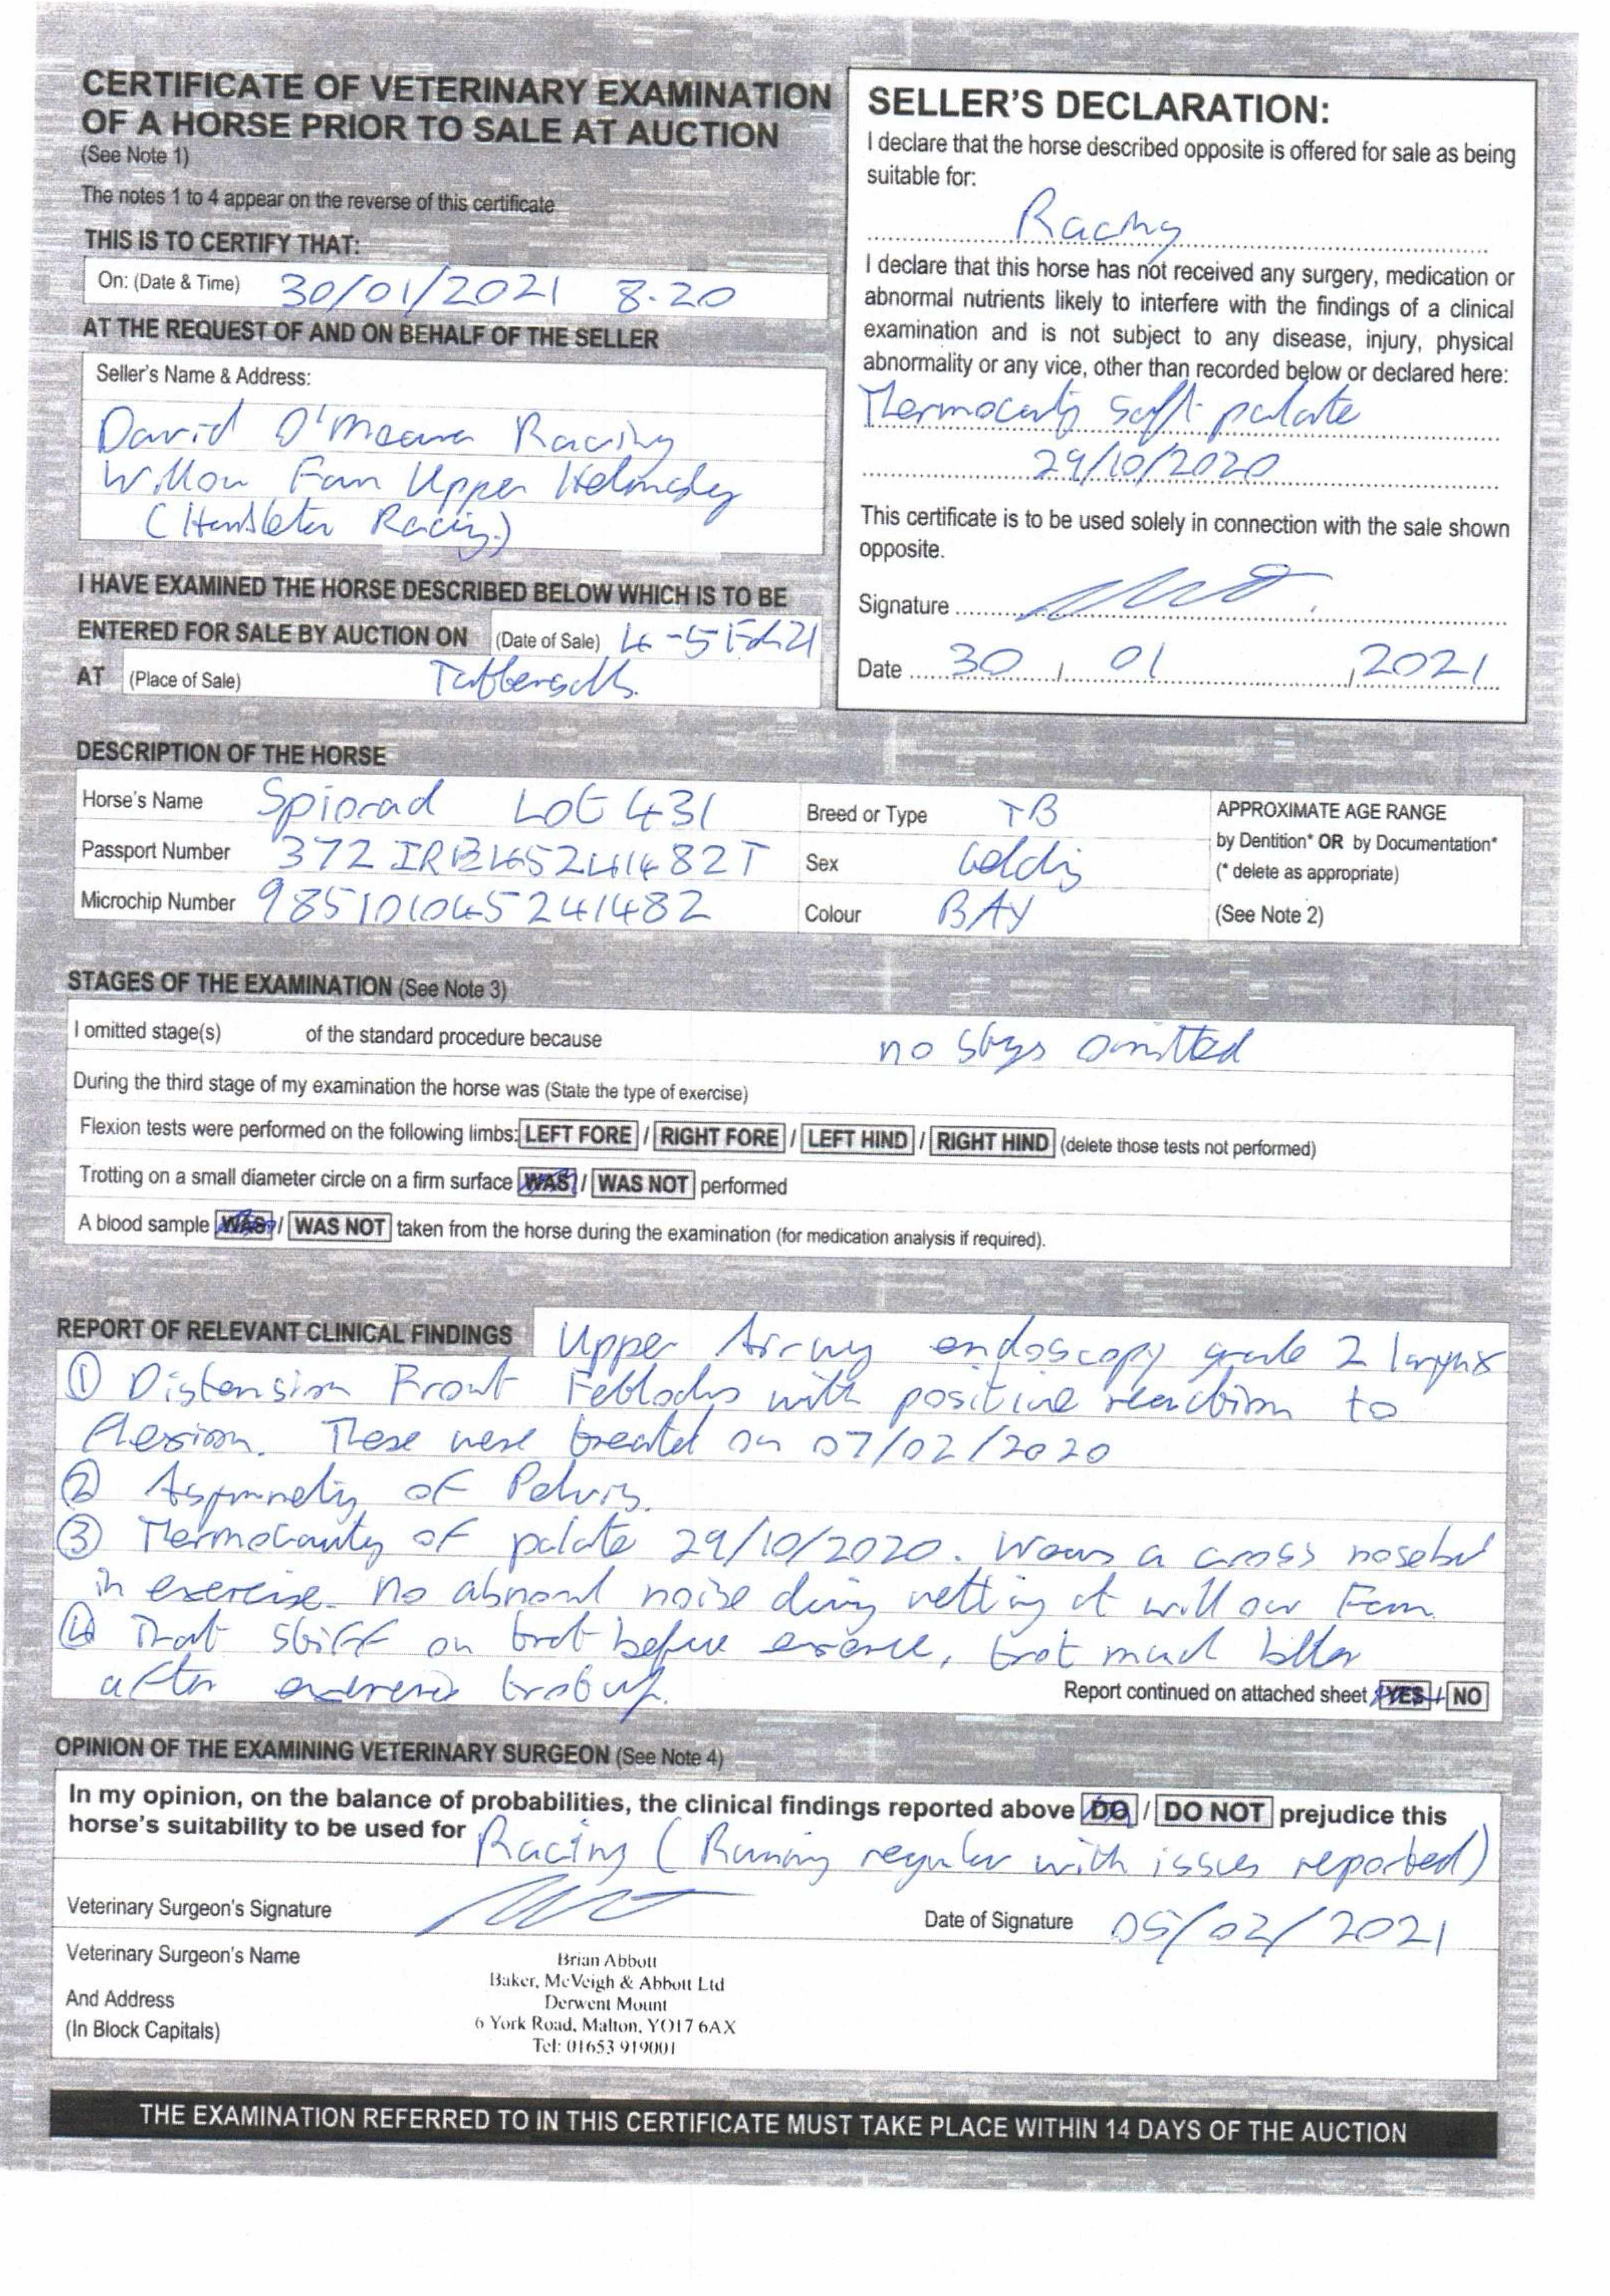 CERTIFICATE OF VETERINARY EXAMINATION
OF A HORSE PRIOR TO SALE AT AUCTION
(See Note 1)
The notes 1 to 4 appear on the reverse of this certificate
THIS IS TO CERTIFY THAT:
On: (Date & Time) 30/01/2021 8.20
AT THE REQUEST OF AND ON BEHALF OF THE SELLER
Seller's Name & Address:
David O'Meara Racing
Willow Farm Upper Helmsley
(Hambleton Racing)
I HAVE EXAMINED THE HORSE DESCRIBED BELOW WHICH IS TO BE
ENTERED FOR SALE BY AUCTION ON (Date of Sale) 4-5 Feb 21
AT (Place of Sale) Tattersalls
SELLER'S DECLARATION:
I declare that the horse described opposite is offered for sale as being
suitable for:
Racing
I declare that this horse has not received any surgery, medication or
abnormal nutrients likely to interfere with the findings of a clinical
examination and is not subject to any disease, injury, physical
abnormality or any vice, other than recorded below or declared here:
Thermocautry soft palate
29/10/2020
This certificate is to be used solely in connection with the sale shown
opposite.
Signature
Date 30 / 01 / 2021
DESCRIPTION OF THE HORSE
Horse's Name Spiorad Lot 431 Breed or Type TB APPROXIMATE AGE RANGE
Passport Number 372 IRE 45241482T Sex Gelding by Dentition* OR by Documentation*
(* delete as appropriate)
Microchip Number 985101045241482 Colour BAY (See Note 2)
STAGES OF THE EXAMINATION (See Note 3)
I omitted stage(s) of the standard procedure because no stages omitted
During the third stage of my examination the horse was (State the type of exercise)
Flexion tests were performed on the following limbs: LEFT FORE / RIGHT FORE / LEFT HIND / RIGHT HIND (delete those tests not performed)
Trotting on a small diameter circle on a firm surface WAS / WAS NOT performed
A blood sample WAS / WAS NOT taken from the horse during the examination (for medication analysis if required).
REPORT OF RELEVANT CLINICAL FINDINGS Upper Airway endoscopy grade 2 larynx
① Distension Front Fetlocks with positive reaction to
flexion. These were treated on 07/02/2020
② Asymmetry of Pelvis.
③ Thermocautry of palate 29/10/2020. Wears a cross noseband
in exercise. No abnormal noise during vetting at willow Farm.
④ Trot stiff on trot before exercise, trot much better
after exercise trot up.
Report continued on attached sheet YES / NO
OPINION OF THE EXAMINING VETERINARY SURGEON (See Note 4)
In my opinion, on the balance of probabilities, the clinical findings reported above DO / DO NOT prejudice this
horse's suitability to be used for Racing (Running regular with issues reported)
Veterinary Surgeon's Signature Date of Signature 05/02/2021
Veterinary Surgeon's Name
And Address
(In Block Capitals)
Brian Abbott
Baker, McVeigh & Abbott Ltd
Derwent Mount
6 York Road, Malton, YO17 6AX
Tel: 01653 919001
THE EXAMINATION REFERRED TO IN THIS CERTIFICATE MUST TAKE PLACE WITHIN 14 DAYS OF THE AUCTION